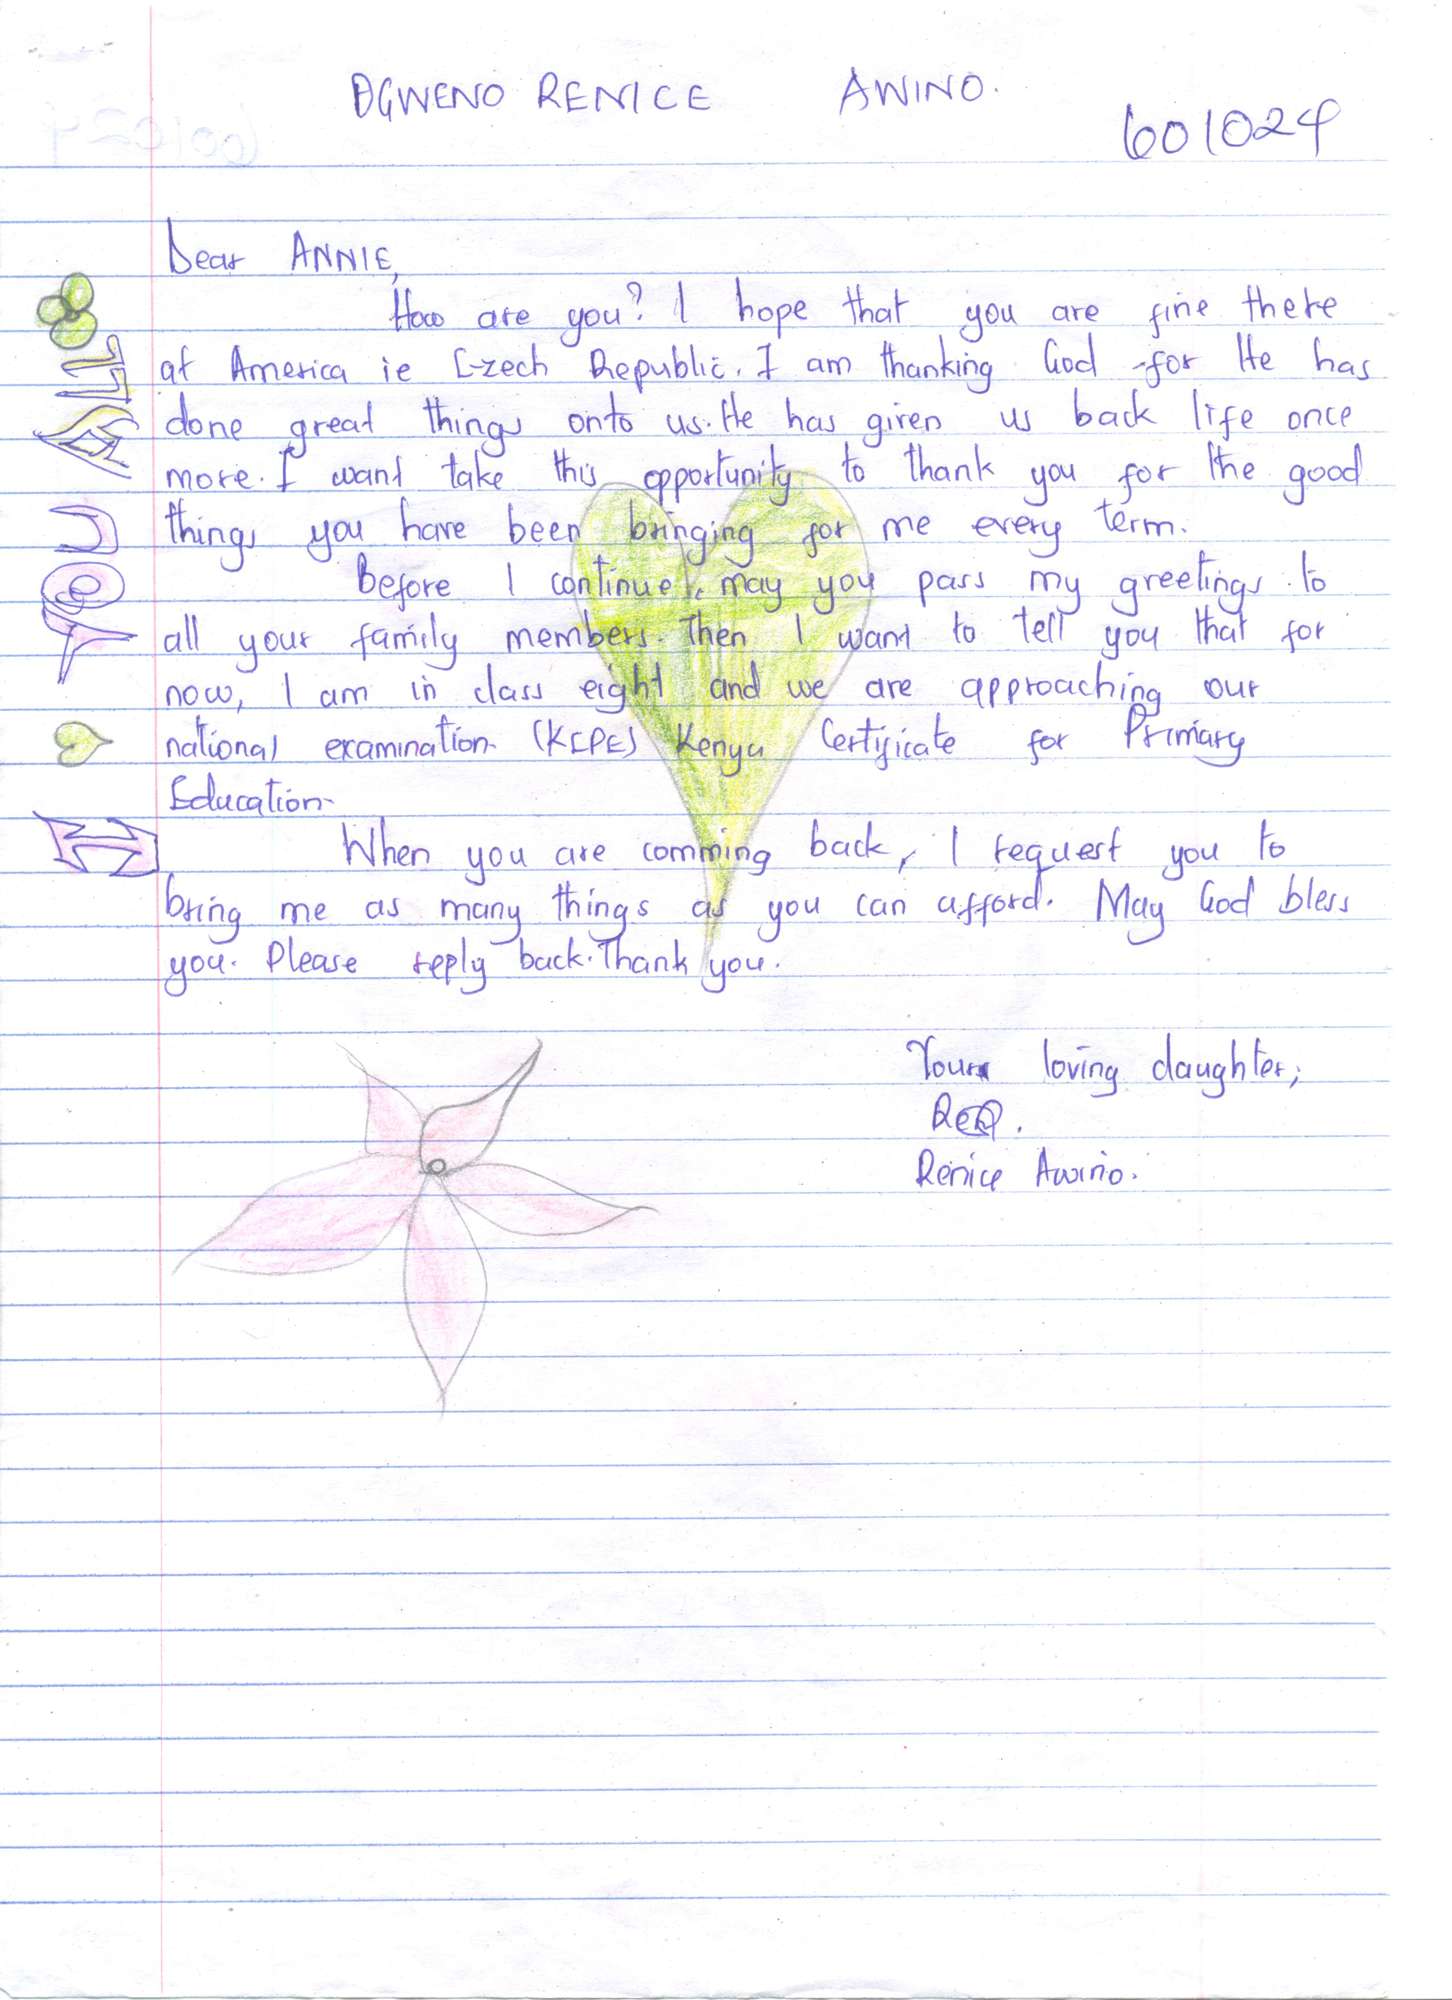 OGWENO RENICE AWINO.
601024
Dear ANNIE,
How are you? I hope that you are fine there
at America ie Czech Republic. I am thanking God for He has
done great things onto us. He has given us back life once
more. I want take this opportunity to thank you for the good
things you have been bringing for me every term.
Before I continue, may you pass my greetings to
all your family members. Then I want to tell you that for
now, I am in class eight and we are approaching our
national examination (KCPE) Kenya Certificate for Primary
Education.
When you are comming back, I request you to
bring me as many things as you can afford. May God bless
you. Please reply back. Thank you.
Your loving daughter,
Renice Awino.